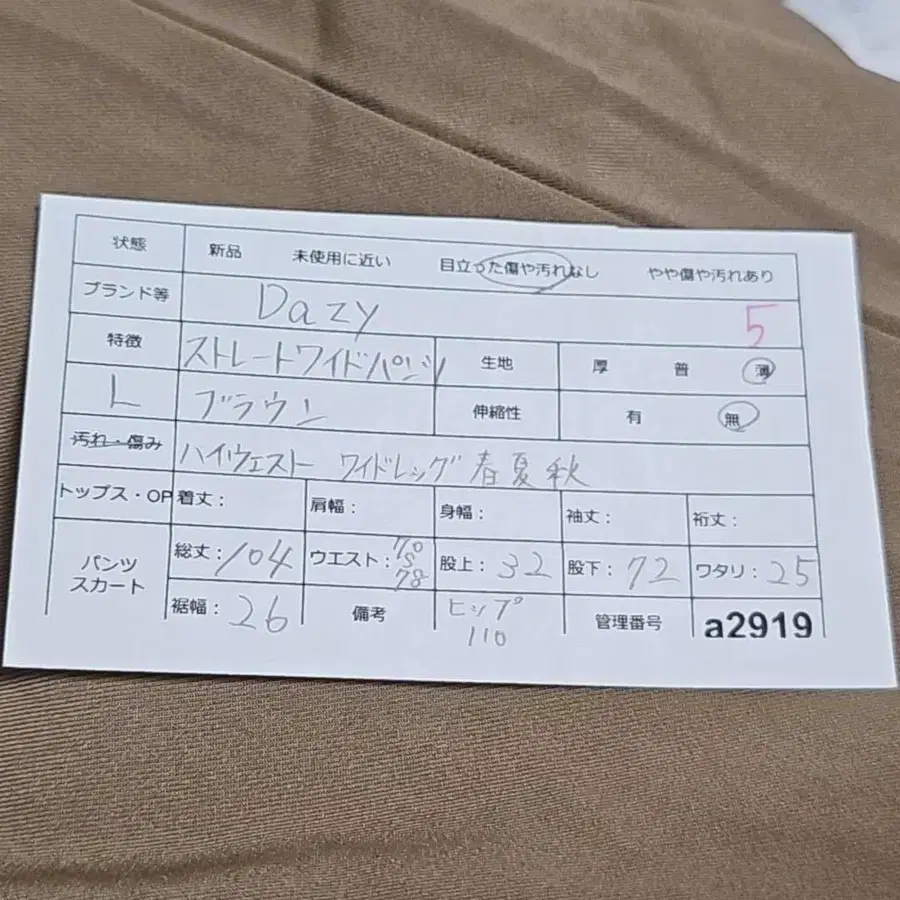 状態 新品 未使用に近い 目立った傷や汚れなし やや傷や汚れあり
ブランド等 Dazy 5
特徴 ストレートワイドパンツ 生地 厚 普 薄
L ブラウン 伸縮性 有 無
汚れ・傷み ハイウェスト ワイドレッグ 春夏秋
トップス・OP 着丈: 肩幅: 身幅: 袖丈: 裄丈:
パンツ スカート 総丈:104 ウエスト:70 S 78 股上:32 股下:72 ワタリ:25
裾幅:26 備考 ヒップ 110 管理番号 a2919